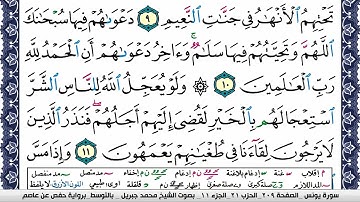 تَحْتِهِمُ ٱلْأَنْهَٰرُ فِى جَنَّٰتِ ٱلنَّعِيمِ ٩ دَعْوَىٰهُمْ فِيهَا سُبْحَٰنَكَ
ٱللَّهُمَّ وَتَحِيَّتُهُمْ فِيهَا سَلَٰمٌ ۚ وَءَاخِرُ دَعْوَىٰهُمْ أَنِ ٱلْحَمْدُ لِلَّهِ
رَبِّ ٱلْعَٰلَمِينَ ١٠ ۞ وَلَوْ يُعَجِّلُ ٱللَّهُ لِلنَّاسِ ٱلشَّرَّ
ٱسْتِعْجَالَهُم بِٱلْخَيْرِ لَقُضِىَ إِلَيْهِمْ أَجَلُهُمْ ۖ فَنَذَرُ ٱلَّذِينَ
لَا يَرْجُونَ لِقَآءَنَا فِى طُغْيَٰنِهِمْ يَعْمَهُونَ ١١ وَإِذَا مَسَّ
سورة يونس . الصفحة ٢٠٩ . الحزب ٢١ . الجزء ١١ . بصوت الشيخ محمد جبريل . بالتوسط . برواية حفص عن عاصم